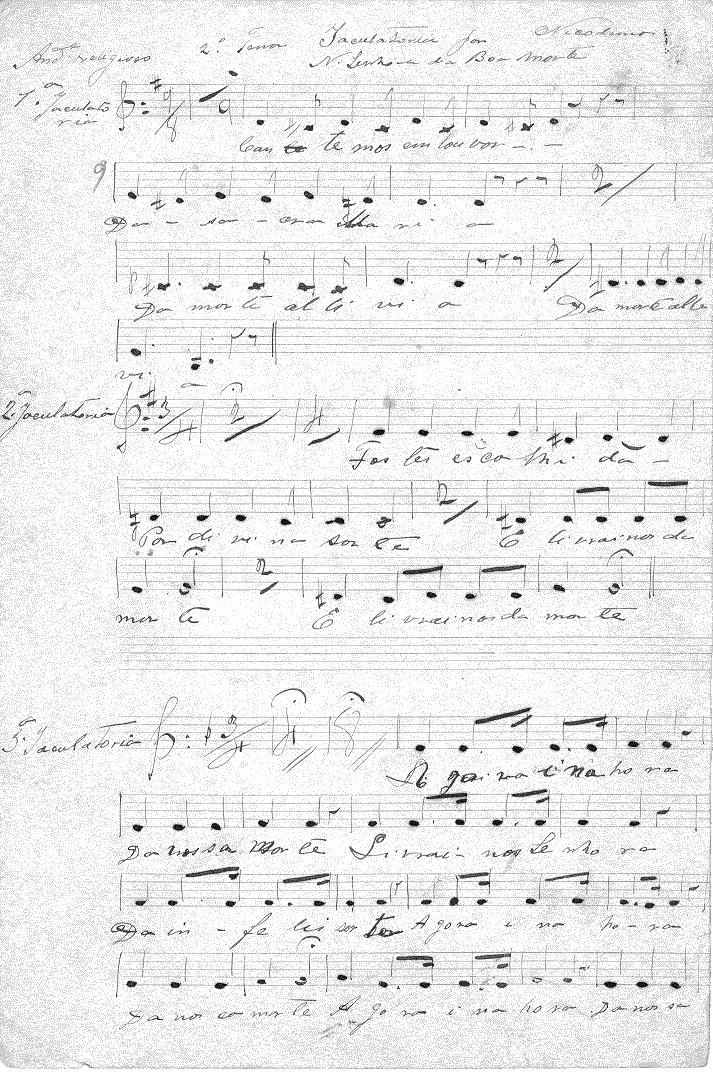 And.te religioso 2.º Tenor Jaculatoria por Nicodemos
N. Senhora da Boa Morte
1.ª Jaculatoria
Can te mos em louvor - . -
9
Da - so - ena Ma ri a
Da mor te al li vi a Da morte alle
vi. a
2.ª Jaculatoria
Fos tes es co lhi da -
Por di vi na sor te E livrainos da
mor te E li vrainosda mor te
3.ª Jaculatoria
A go ra i na ho ra
Da nossa Mor te Livrai nos Se nho ra
Da in - fe liz sor te Agora i na ho - ra
Da nos sa mor te A go ra i na ho ra Da nossa